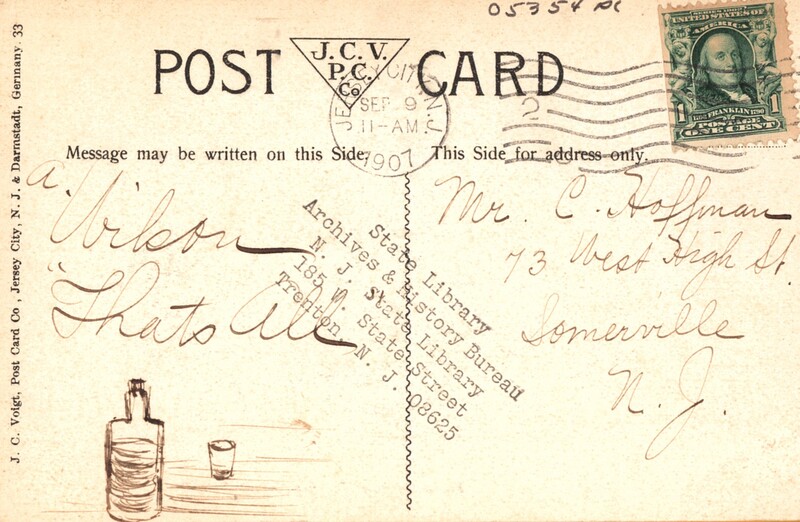 05354 PC
POST CARD
J. C. V.
P. C.
Co
SERIES 1902
UNITED STATES OF
AMERICA
1 1
1706 FRANKLIN 1790
POSTAGE
ONE CENT
JERSEY CITY, N.J.
SEP 9
11-AM
1907
Message may be written on this Side,
This Side for address only.
a. Wilson
"Thats All
Mr. C. Hoffman
73 West High St.
Somerville
N. J.
State Library
Archives & History Bureau
N. J. State Library
185 W. State Street
Trenton, N. J. 08625
J. C. Voigt, Post Card Co, Jersey City, N. J. & Darmstadt, Germany. 33